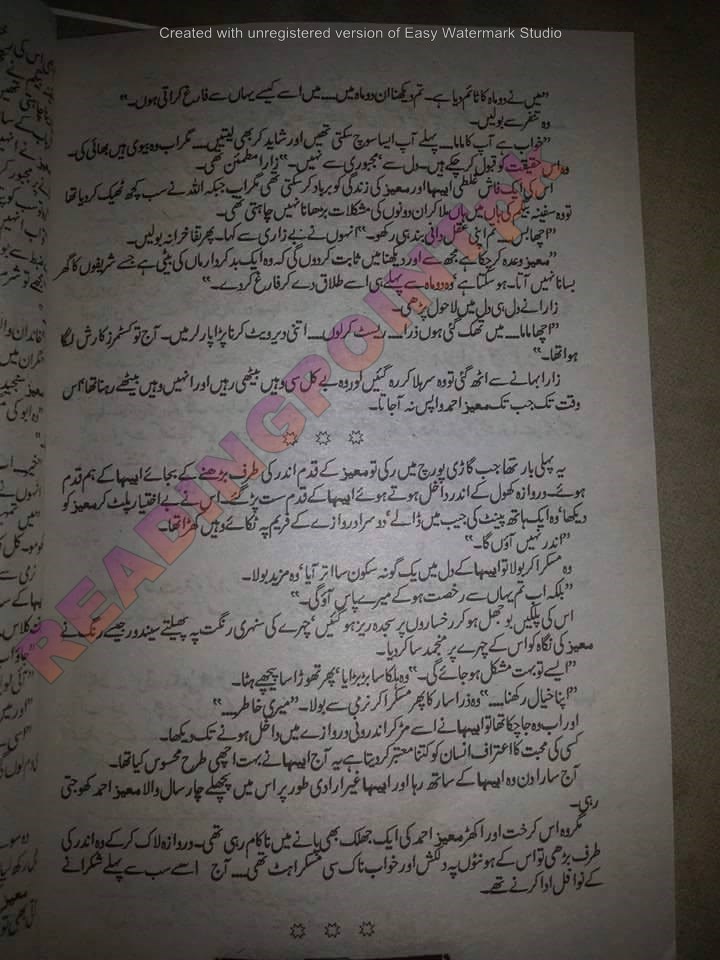 Created with unregistered version of Easy Watermark Studio
"میں نے دو ماہ کا ٹائم دیا ہے۔ تم دیکھنا ان دو ماہ میں.... میں اسے کیسے یہاں سے فارغ کراتی ہوں۔"
وہ تنفر سے بولیں۔
"خواب ہے آپ کا ماما.... پہلے آپ ایسا سوچ سکتی تھیں اور شاید کر بھی لیتیں.... مگر اب وہ بیوی ہیں بھائی کی۔
وہ اس حقیقت کو قبول کر چکے ہیں۔ دل سے، مجبوری سے نہیں۔" زارا مطمئن تھی۔
اس کی ایک فاش غلطی ایہا اور معیز کی زندگی کو برباد کر سکتی تھی مگر اب جبکہ اللہ نے سب کچھ ٹھیک کر دیا تھا
تو وہ سفینہ بیگم کی ہاں میں ہاں ملا کر ان دونوں کی مشکلات بڑھانا نہیں چاہتی تھی۔
"اچھا بس.... تم اپنی عقل دانی بند ہی رکھو۔" انہوں نے بے زاری سے کہا۔ پھر تفاخرانہ بولیں۔
"معیز وعدہ کر چکا ہے مجھ سے اور دیکھنا میں ثابت کر دوں گی کہ وہ ایک بدکردار ماں کی بیٹی ہے جسے شریفوں کا گھر
بسانا نہیں آتا۔ ہو سکتا ہے، وہ دو ماہ سے پہلے ہی اسے طلاق دے کر فارغ کر دے۔"
زارا نے دل ہی دل میں لاحول پڑھی۔
"اچھا ماما.... میں تھک گئی ہوں ذرا.... ریسٹ کر لوں.... اتنی دیر ویٹ کرنا پڑا پارلر میں۔ آج تو کسٹمرز کا رش لگا
ہوا تھا۔"
زارا بہانے سے اٹھ گئی تو وہ سر ہلا کر رہ گئیں اور وہ بے کل سی وہیں بیٹھی رہیں اور انہیں وہیں بیٹھے رہنا تھا، اس
وقت تک جب تک معیز احمد واپس نہ آ جاتا۔
یہ پہلی بار تھا جب گاڑی پورچ میں رکی تو معیز کے قدم اندر کی طرف بڑھنے کے بجائے ایہا کے ہم قدم
ہوئے۔ دروازہ کھول کے اندر داخل ہوتے ہوئے ایہا کے قدم ست پڑ گئے۔ اس نے بے اختیار پلٹ کر معیز کو
دیکھا، وہ ایک ہاتھ پینٹ کی جیب میں ڈالے، دوسرا دروازے کے فریم پہ ٹکائے وہیں کھڑا تھا۔
"اندر نہیں آؤں گا۔"
وہ مسکرا کر بولا تو ایہا کے دل میں یک گونہ سکون سا اتر آیا، وہ مزید بولا۔
"بلکہ اب تم یہاں سے رخصت ہو کے میرے پاس آؤ گی۔"
اس کی پلکیں بوجھل ہو کر رخساروں پر سجدہ ریز ہو گئیں، چہرے کی سنہری رنگت پہ پھیلتے سیندور جیسے رنگ نے
معیز کی نگاہ کو اس کے چہرے پر منجمد سا کر دیا۔
"ایسے تو بہت مشکل ہو جائے گی۔" وہ ہلکا سا بڑبڑایا، پھر تھوڑا سا پیچھے ہٹا۔
"اپنا خیال رکھنا...." وہ ذرا سا رکا پھر مسکرا کر نرمی سے بولا۔ "میری خاطر...."
اور اب وہ جا چکا تھا تو ایہا نے اسے مڑ کر اندرونی دروازے میں داخل ہونے تک دیکھا۔
کسی کی محبت کا اعتراف انسان کو کتنا معتبر کر دیتا ہے یہ آج ایہا نے بہت اچھی طرح محسوس کیا تھا۔
آج سارا دن وہ ایہا کے ساتھ رہا اور ایہا غیر ارادی طور پر اس میں پچھلے چار سال والا معیز احمد کھوجتی
رہی۔
مگر وہ اس کرخت اور اکھڑ معیز احمد کی ایک جھلک بھی پانے میں ناکام رہی تھی۔ دروازہ لاک کر کے وہ اندر کی
طرف بڑھی تو اس کے ہونٹوں پہ دلکش اور خواب ناک سی مسکراہٹ تھی.... آج اسے سب سے پہلے شکرانے
کے نوافل ادا کرنے تھے۔
READINGPOINTPK